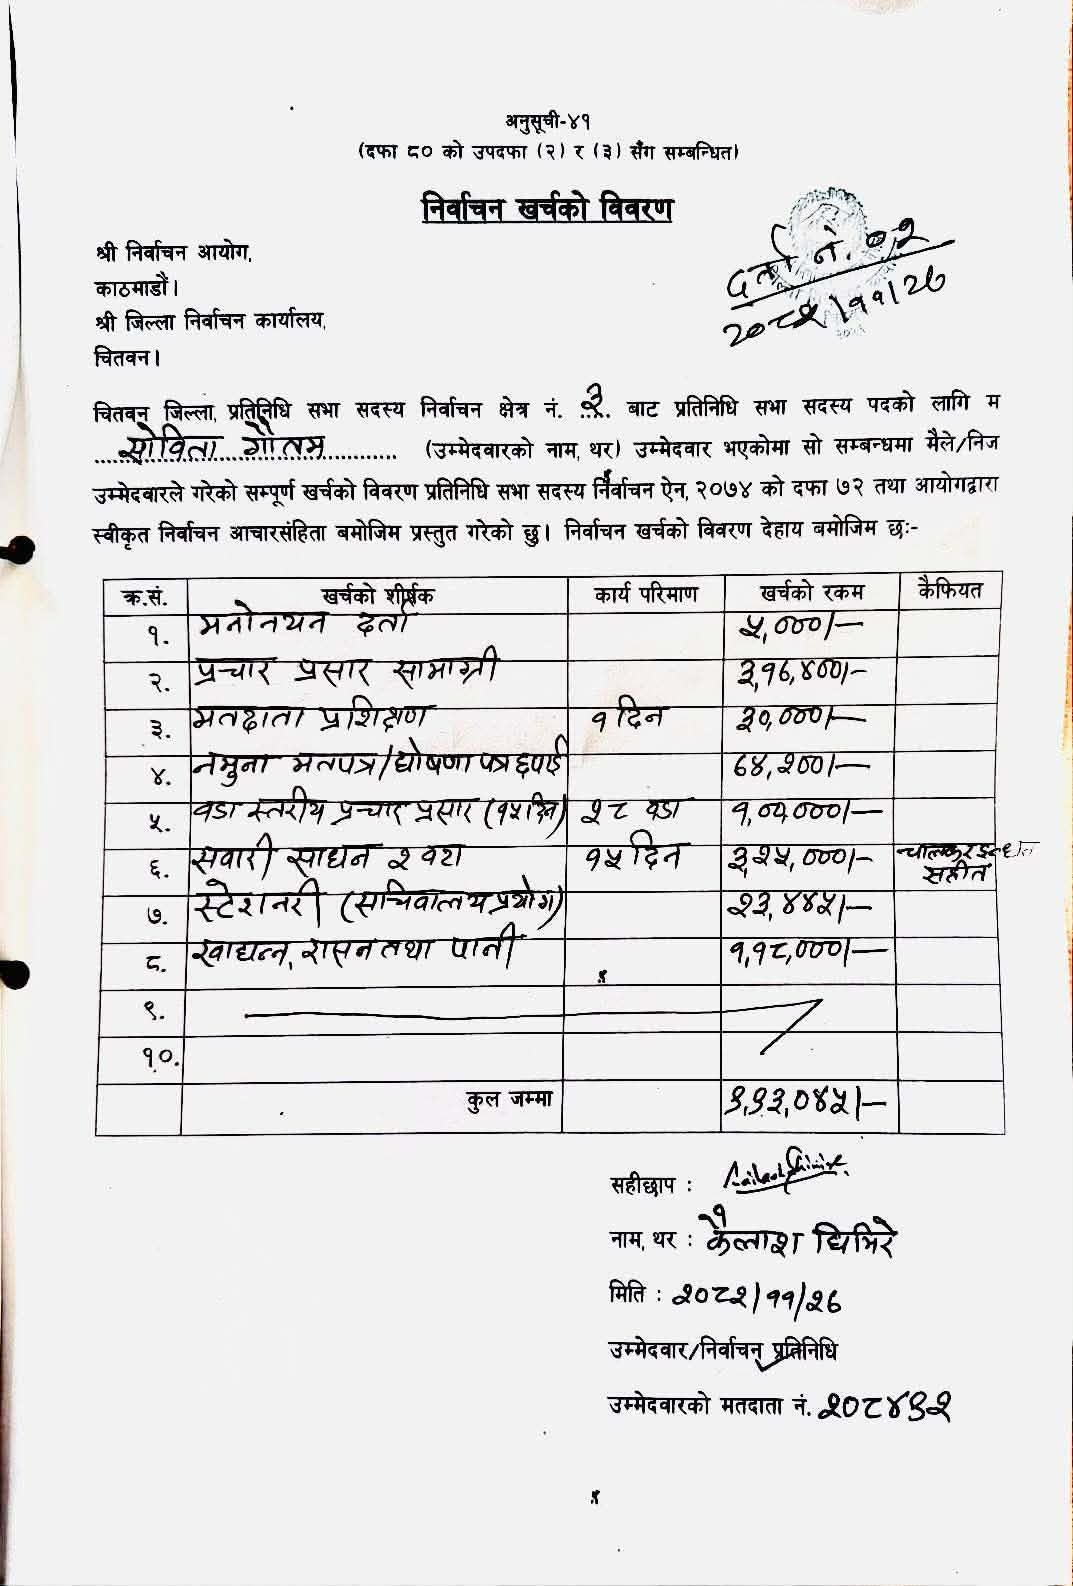 अनुसूची-४१
(दफा ८० को उपदफा (२) र (३) सँग सम्बन्धित)
निर्वाचन खर्चको विवरण
दर्ता नं. ०२
२०८२/११/२६
श्री निर्वाचन आयोग,
काठमाडौं।
श्री जिल्ला निर्वाचन कार्यालय,
चितवन।
चितवन जिल्ला, प्रतिनिधि सभा सदस्य निर्वाचन क्षेत्र नं. ..३.. बाट प्रतिनिधि सभा सदस्य पदको लागि म
सोविता गौतम (उम्मेदवारको नाम, थर) उम्मेदवार भएकोमा सो सम्बन्धमा मैले/निज
उम्मेदवारले गरेको सम्पूर्ण खर्चको विवरण प्रतिनिधि सभा सदस्य निर्वाचन ऐन, २०७४ को दफा ७२ तथा आयोगद्वारा
स्वीकृत निर्वाचन आचारसंहिता बमोजिम प्रस्तुत गरेको छु। निर्वाचन खर्चको विवरण देहाय बमोजिम छः-
क्र.सं. खर्चको शीर्षक कार्य परिमाण खर्चको रकम कैफियत
१. मनोनयन दर्ता ५,०००/-
२. प्रचार प्रसार सामाग्री ३,१६,४००/-
३. मतदाता प्रशिक्षण १ दिन ३०,०००/-
४. नमुना मतपत्र/घोषणा पत्र छपाई ६४,२००/-
५. वडा स्तरीय प्रचार प्रसार (१५ दिन) २८ वडा
६. सवारी साधन २ वटा १५ दिन ३,२५,०००/- सहीत
७. स्टेशनरी (सचिवालय प्रयोग) २३,४४५/-
८. खाद्यन्न, रासन तथा पानी १,१८,०००/-
९.
१०.
कुल जम्मा ९,९३,०४५/-
सहीछाप :
नाम, थर : कैलाश घिमिरे
मिति : २०८२/११/२६
उम्मेदवार/निर्वाचन प्रतिनिधि
उम्मेदवारको मतदाता नं. २०८४९२